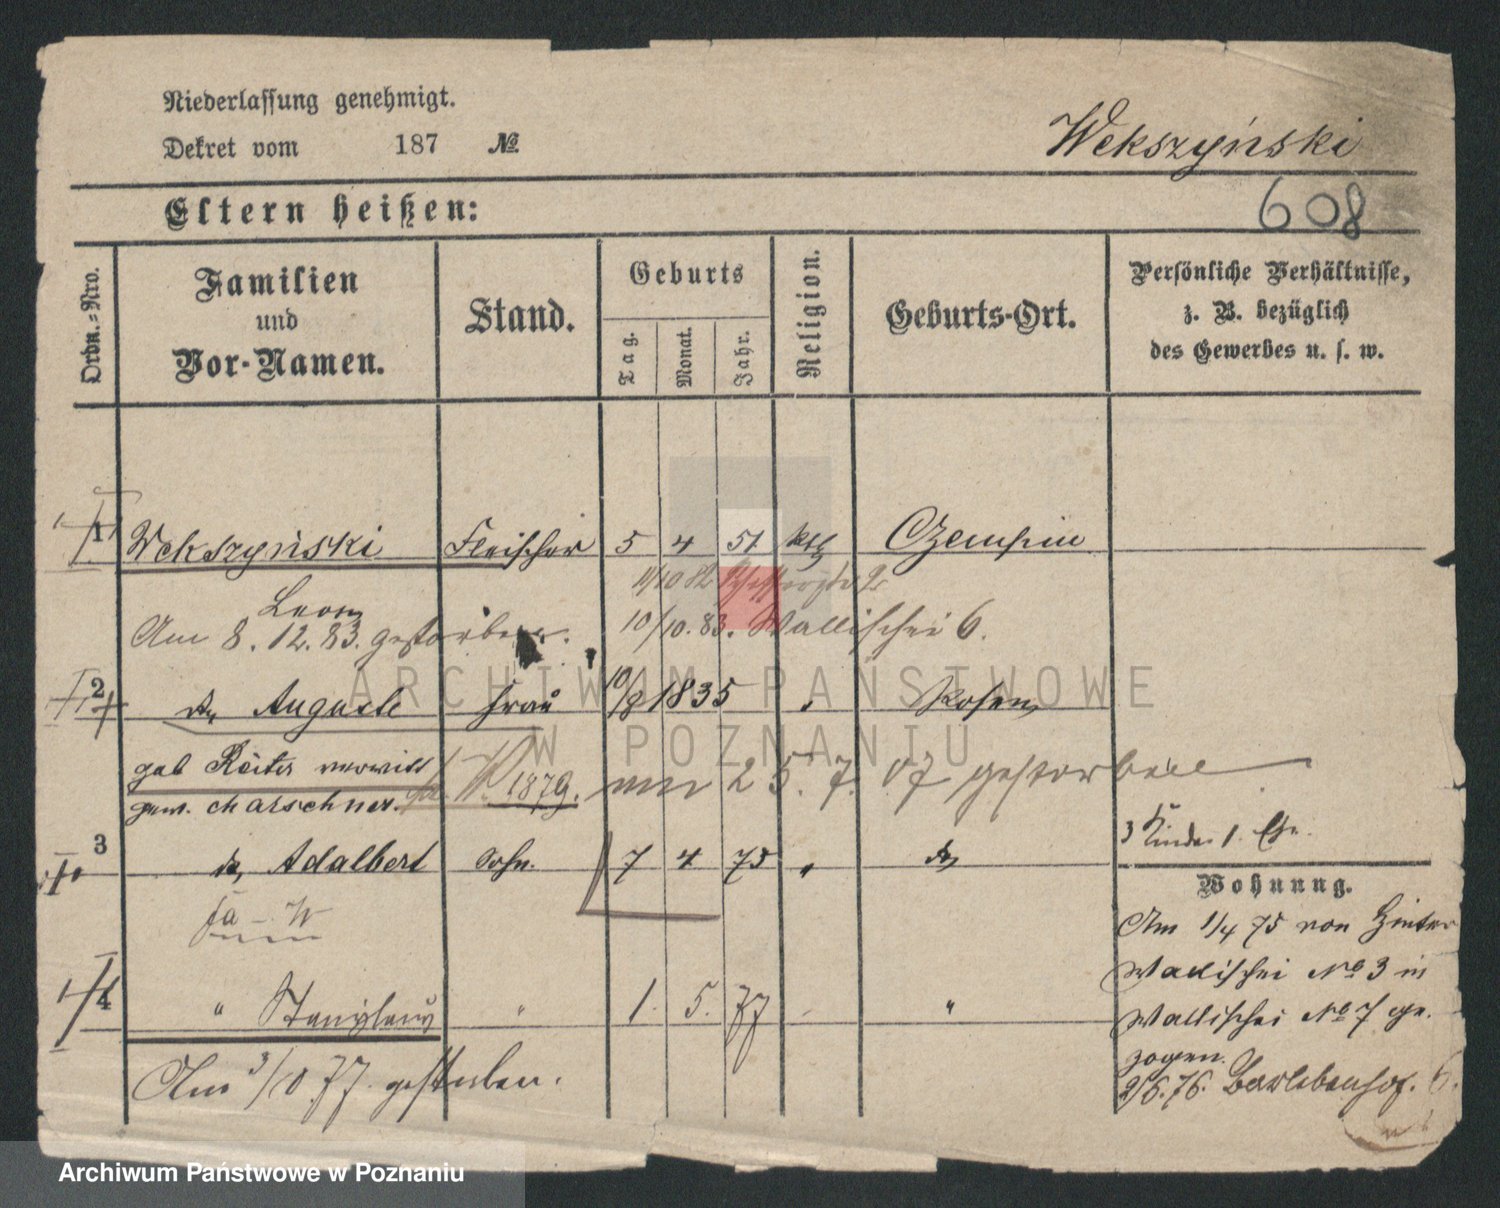 Niederlassung genehmigt.
Dekret vom 187 №
Wekszyński
608
Eltern heißen:
Ordn.-Nro.
Familien und Vor-Namen.
Stand.
Geburts
Tag.
Monat.
Jahr.
Religion.
Geburts-Ort.
Persönliche Verhältnisse,
z. B. bezüglich
des Gewerbes u. s. w.
1 Wekszyński Fleischer 5 4 51 kth Czempin
Leon
11/10 82
Am 8. 12. 83. gestorben. 10/10. 83. Wallischei 6.
2 do Auguste Frau 10/8 1835 " Posen
geb Reiter verwitt
gew. Marschner. 1879. am 25. 7. 07 gestorben
3 do Adalbert Sohn. 7 4 75 " do
3 Kinder 1. Ehe.
Wohnung.
Am 1/4 75 von Hinter
Wallischei № 3 in
Wallischei № 7 ge.
zogen.
2/6. 76. Berlebenhof. 6.
4 " Stanislaus " 1. 5. 77 "
Am 3/10 77. gestorben.
ARCHIWUM PAŃSTWOWE
W POZNANIU
Archiwum Państwowe w Poznaniu